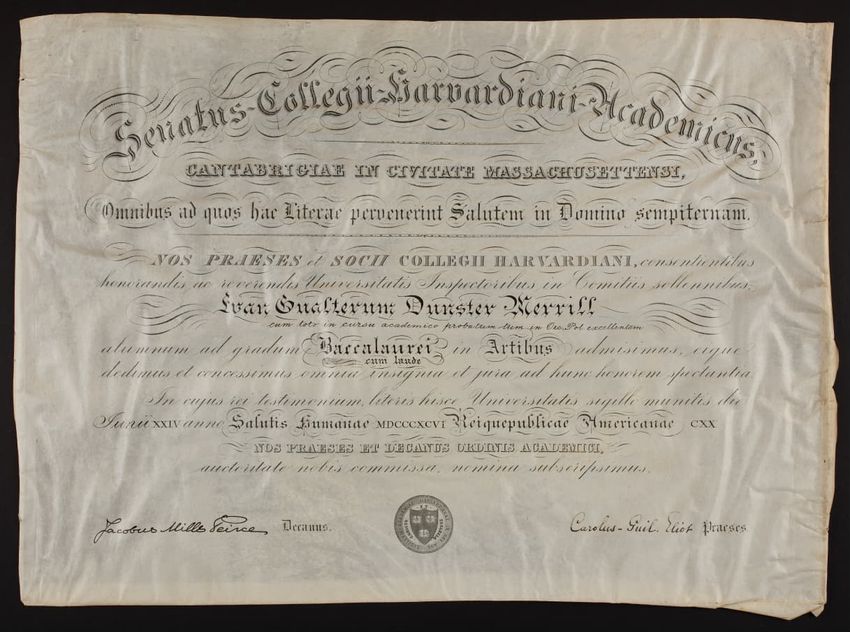 Senatus-Collegii-Harvardiani-Academicus,
CANTABRIGIAE IN CIVITATE MASSACHUSETTENSI,
Omnibus ad quos hae Literae pervenerint Salutem in Domino sempiternam.
NOS PRAESES et SOCII COLLEGII HARVARDIANI, consentientibus
honorandis ac reverendis Universitatis Inspectoribus in Comitiis sollennibus,
Gualterum Dunster Merrill
cum toto in cursu academico probatum tum in Oec. Pol. excellentem
alumnum ad gradum Baccalaurei in Artibus admisimus, eique
cum laude
dedimus et concessimus omnia insignia et jura ad hunc honorem spectantia.
In cujus rei testimonium, literis hisce Universitatis sigillo munitis die
Junii XXIV anno Salutis Humanae MDCCCXCVI Reique publicae Americanae CXX
NOS PRAESES ET DECANUS ORDINIS ACADEMICI,
auctoritate nobis commissa, nomina subscripsimus.
Jacobus Mills Peirce Decanus. Carolus-Guil. Eliot Praeses